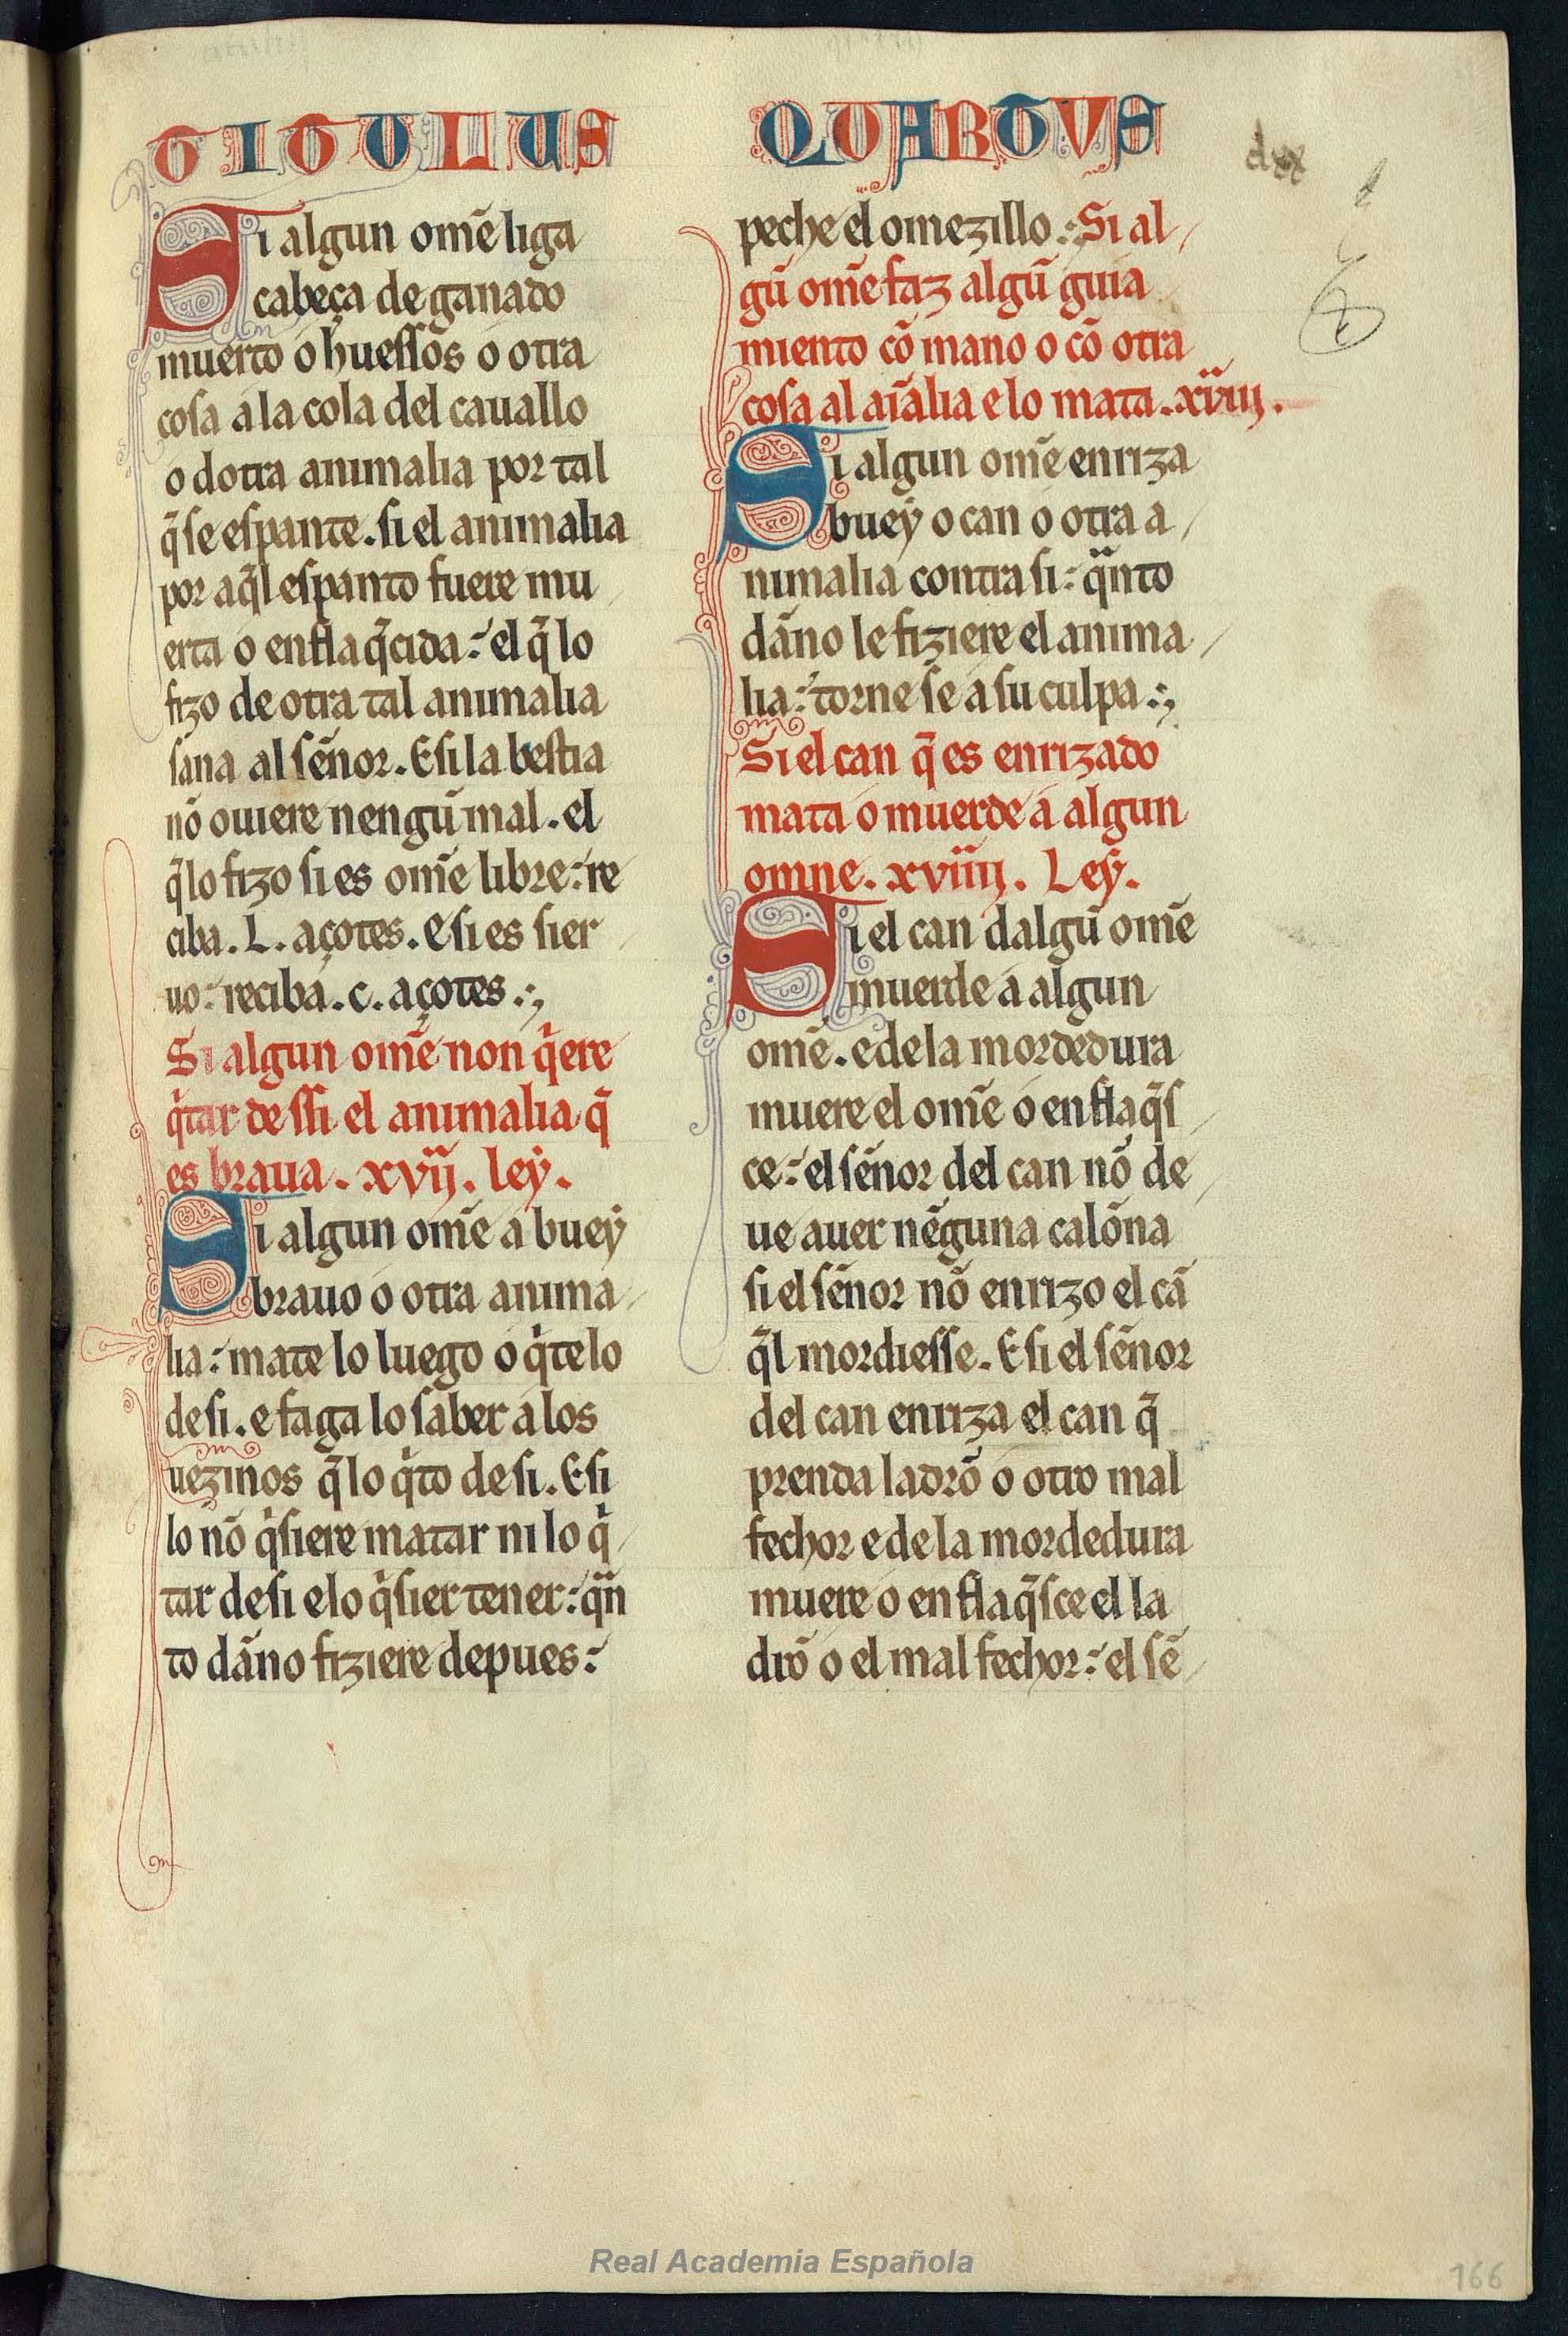 TITULUS QUARTUS
Si algun om̃e liga
cabeça de ganado
muerto o huessos o otra
cosa a la cola del cauallo
o dotra animalia por tal
q̃ se espante. si el animalia
por aq̃l espanto fuere mu
erta o enflaq̃cida: el q̃ lo
fizo de otra tal animalia
sana al sẽnor. E si la bestia
nõ ouiere nengũ mal. el
q̃ lo fizo si es om̃e libre: re
ciba. L. açotes. E si es sier
uo: reciba. c. açotes.
Si algun om̃e non q̃ere
q̃tar de ssi el animalia q̃
es braua. xvij. ley.
Si algun om̃e a buey
brauo o otra anima
lia: mate lo luego o q̃telo
de si. e faga lo saber a los
uezinos q̃ lo q̃to de si. E si
lo nõ q̃siere matar ni lo q̃
tar de si e lo q̃sier tener: q̃n
to dãno fiziere depues:
peche el omezillo. Si al
gũ om̃e faz algũ guia
miento cõ mano o cõ otra
cosa al aĩalia e lo mata. xviij.
Si algun om̃e enriza
buey o can o otra a
nimalia contra si: q̃nto
dãno le fiziere el anima
lia: torne se a su culpa.
Si el can q̃ es enrizado
mata o muerde a algun
omne. xviiij. Ley.
Si el can dalgũ om̃e
muerde a algun
om̃e. e de la mordedura
muere el om̃e o enflaq̃s
ce: el sẽnor del can nõ de
ue auer nẽguna calõna
si el sẽnor nõ enrizo el cã
q̃l mordiesse. E si el sẽnor
del can enriza el can q̃
prenda ladrõ o otro mal
fechor e de la mordedura
muere o enflaq̃sce el la
drõ o el mal fechor: el sẽ
Real Academia Española
166